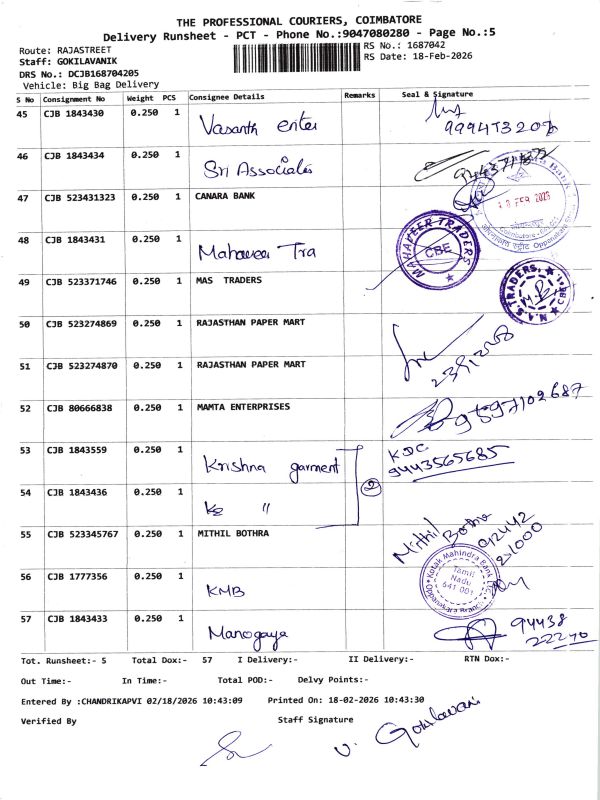 THE PROFESSIONAL COURIERS, COIMBATORE
Delivery Runsheet - PCT - Phone No.:9047080280 - Page No.:5
Route: RAJASTREET
RS No.: 1687042
Staff: GOKILAVANIK
RS Date: 18-Feb-2026
DRS No.: DCJB168704205
Vehicle: Big Bag Delivery
S No Consignment No Weight PCS Consignee Details Remarks Seal & Signature
45 CJB 1843430 0.250 1 Vasanth enter
46 CJB 1843434 0.250 1 Sri Associates
47 CJB 523431323 0.250 1 CANARA BANK
18 FEB 2026
48 CJB 1843431 0.250 1 Mahaveer Tra
MAHAVEER TRADERS CBE
49 CJB 523371746 0.250 1 MAS TRADERS
TRADERS, CBE
50 CJB 523274869 0.250 1 RAJASTHAN PAPER MART
51 CJB 523274870 0.250 1 RAJASTHAN PAPER MART
52 CJB 80666838 0.250 1 MAMTA ENTERPRISES 9597102687
53 CJB 1843559 0.250 1 Krishna garment
KDC
9443565685
2
54 CJB 1843436 0.250 1 "
55 CJB 523345767 0.250 1 MITHIL BOTHRA Mithil Bothra
92442
21000
56 CJB 1777356 0.250 1 KMB
Kotak Mahindra Bank
Tamil
Nadu
641 001
57 CJB 1843433 0.250 1 Manogaya 94438
22270
Tot. Runsheet:- 5 Total Dox:- 57 I Delivery:- II Delivery:- RTN Dox:-
Out Time:- In Time:- Total POD:- Delvy Points:-
Entered By :CHANDRIKAPVI 02/18/2026 10:43:09 Printed On: 18-02-2026 10:43:30
Verified By Staff Signature
V. Gokilavani